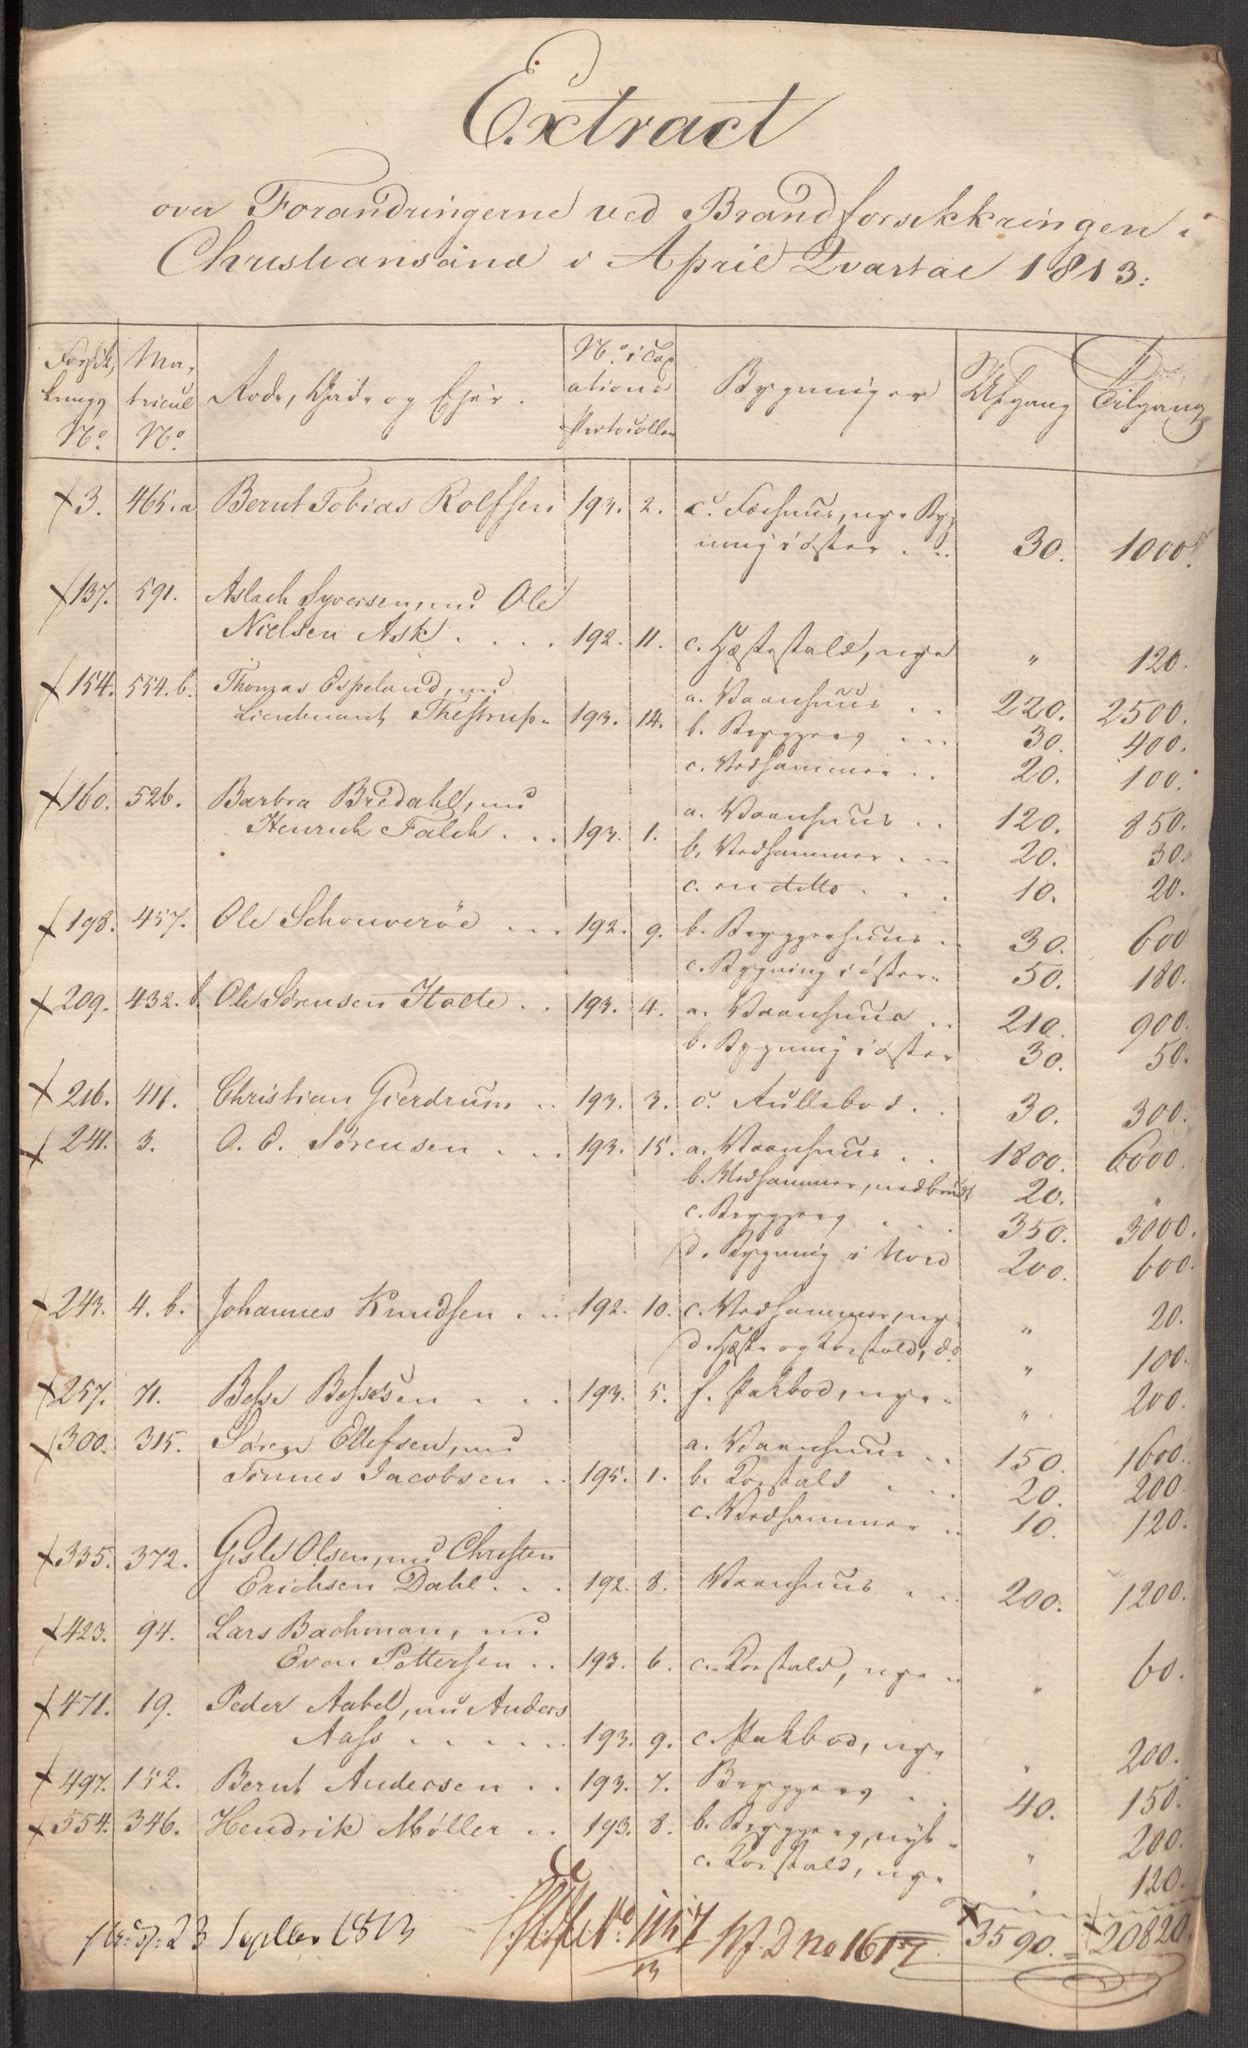 Extract
over Forandringerne ved Brandforsikkringen i
Christiansand i April Qvartal 1813:
Forsik, Ma, Rode, Gade og Ejer. No. i Tax Bygninger Afgang Tilgang
krings tricul ations
No. No. Protocollen
3. 465.a Bernt Tobias Rolfsen 193. 2. c. Fæehuus, nye Byg
ning i øster 30. 1000.
137. 591. Aslach Syversen, nu Ole
Nielsen Ask 192. 11. c. Hæstestald, nye " 120.
154. 554.b. Thomas Espeland, nu a. Vaanhuus 220. 2500.
Lieutenant Thestrup 193. 14. b. Bryggers 30. 400.
c. Vedhammer 20. 100.
160. 526. Barbra Bredahl, nu a. Vaanhuus 120. 850.
Henrich Falch 193. 1. b. Vedhammer 20. 30.
c. en ditto 10. 20.
198. 457. Ole Schouverøe 192. 9. b. Bryggerhuus 30. 600
c. Bygning i øster 50. 180.
209. 432.b. Ole Sørensen Holte 193. 4. a. Vaanhuus 210. 900.
b. Bygning i øster 30. 50.
216. 411. Christian Gierdrum 193. 3. c. Rullebod 30. 300.
241. 3. O. E. Sørensen 193. 15. a. Vaanhuus 1800. 6000.
b. Vedhammer, nedbrudt 20. "
c. Bryggers 350. 3000.
d. Bygning i Nord 200. 600.
243. 4.b. Johannes Knudsen 192. 10. c. Vedhammer, nye " 20.
d. Hæste og Koestald, do " 100.
257. 71. Besse Bessesen 193. 5. f. Pakbod, nye " 200.
300. 315. Søren Ellefsen, nu a. Vaanhuus 150. 1600.
Tønnes Jacobsen 195. 1. b. Koestald 20. 200.
c. Vedhammer 10. 120.
335. 372. Gisle Olsen, nu Christen
Erichsen Dahl 192. 8. Vaanhuus 200. 1200.
423. 94. Lars Bachman, nu
Even Pettersen 193. 6. c. Koestald, nye " 60.
471. 19. Peder Aabel, nu Anders
Aass 193. 9. c. Pakbod, nye " 200.
497. 152. Bernt Andersen 193. 7. Bryggers 40. 150.
554. 346. Hendrik Møller 193. 8. b. Bryggers, nyt " 200.
c. Koestald, nye " 120.
23 Septbr 1813 No 1617 3590. 20820.